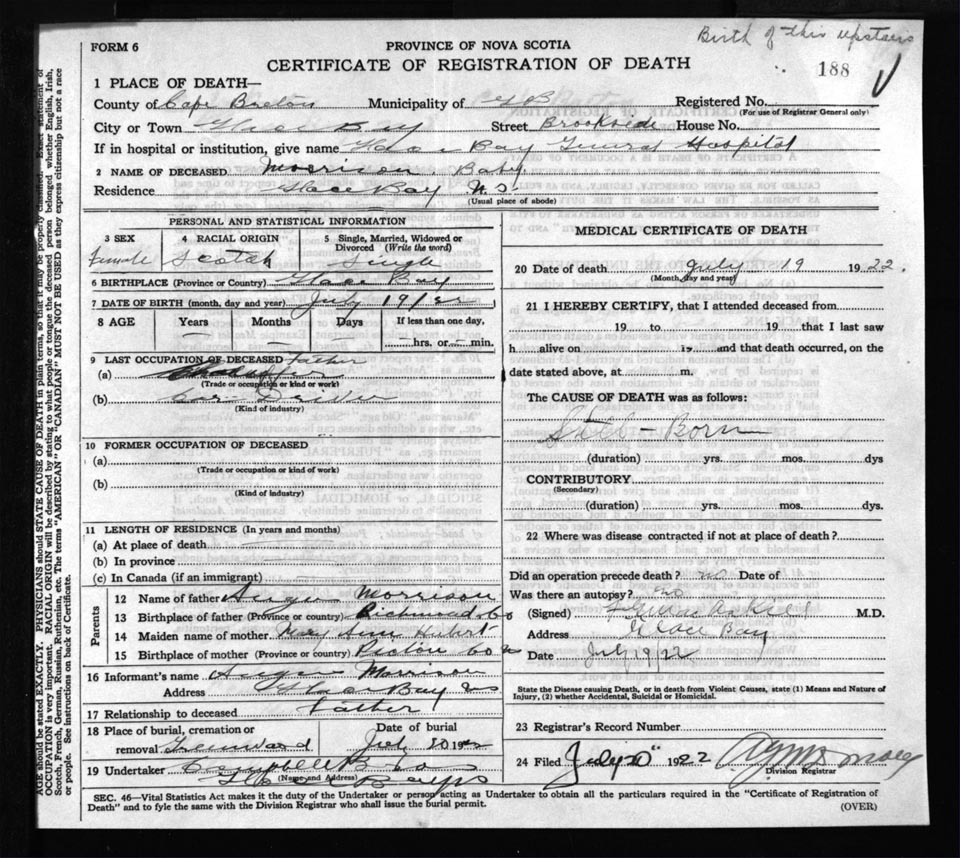 Birth of this upstairs
FORM 6
PROVINCE OF NOVA SCOTIA
CERTIFICATE OF REGISTRATION OF DEATH
188
1 PLACE OF DEATH—
County of Cape Breton Municipality of Registered No.
(For use of Registrar General only)
City or Town Glace Bay Street Brookside House No.
If in hospital or institution, give name Glace Bay General Hospital
2 NAME OF DECEASED Morrison Baby
Residence Glace Bay N.S.
(Usual place of abode)
PERSONAL AND STATISTICAL INFORMATION
3 SEX
Female
4 RACIAL ORIGIN
Scotch
5 Single, Married, Widowed or Divorced (Write the word)
Single
6 BIRTHPLACE (Province or Country) Glace Bay
7 DATE OF BIRTH (month, day and year) July 19/22
8 AGE Years Months Days If less than one day,
hrs. or min.
9 LAST OCCUPATION OF DECEASED Father
(a)
(Trade or occupation or kind or work)
(b) Car Driver
(Kind of industry)
10 FORMER OCCUPATION OF DECEASED
(a)
(Trade or occupation or kind of work)
(b)
(Kind of industry)
11 LENGTH OF RESIDENCE (In years and months)
(a) At place of death
(b) In province
(c) In Canada (if an immigrant)
Parents
12 Name of father Angus Morrison
13 Birthplace of father (Province or country) Richmond Co
14 Maiden name of mother Mary Ann Hubert
15 Birthplace of mother (Province or country) Pictou Co
16 Informant's name Angus Morrison
Address Glace Bay NS
17 Relationship to deceased Father
18 Place of burial, cremation or
removal Greenwood
Date of burial
July 20 1922
19 Undertaker Campbell
(Name and Address)
Glace Bay NS
MEDICAL CERTIFICATE OF DEATH
20 Date of death July 19 1922.
(Month, day and year)
21 I HEREBY CERTIFY, that I attended deceased from
19 to 19 that I last saw
h alive on 19 and that death occurred, on the
date stated above, at m.
The CAUSE OF DEATH was as follows:
Still-Born
(duration) yrs. mos. dys
CONTRIBUTORY
(Secondary)
(duration) yrs. mos. dys.
22 Where was disease contracted if not at place of death?
Did an operation precede death? no Date of
Was there an autopsy? no
(Signed) M.D.
Address Glace Bay
Date July 19/22
State the Disease causing Death, or in death from Violent Causes, state (1) Means and Nature of
Injury, (2) whether Accidental, Suicidal or Homicidal.
23 Registrar's Record Number
24 Filed July 20" 1922
Division Registrar
SEC. 46—Vital Statistics Act makes it the duty of the Undertaker or person acting as Undertaker to obtain all the particulars required in the "Certificate of Registration of
Death" and to fyle the same with the Division Registrar who shall issue the burial permit.
(OVER)
AGE should be stated EXACTLY. PHYSICIANS should STATE CAUSE OF DEATH in plain terms, so that it may be properly classified. Exact statement of
OCCUPATION is very important. RACIAL ORIGIN will be described by stating to what people or tongue the deceased person belonged whether English, Irish,
Scotch, French, German, Russian, Ruthenian, etc. The terms "AMERICAN" OR "CANADIAN" MUST NOT BE USED as they express citizenship but not a race
or people. See instructions on back of Certificate.